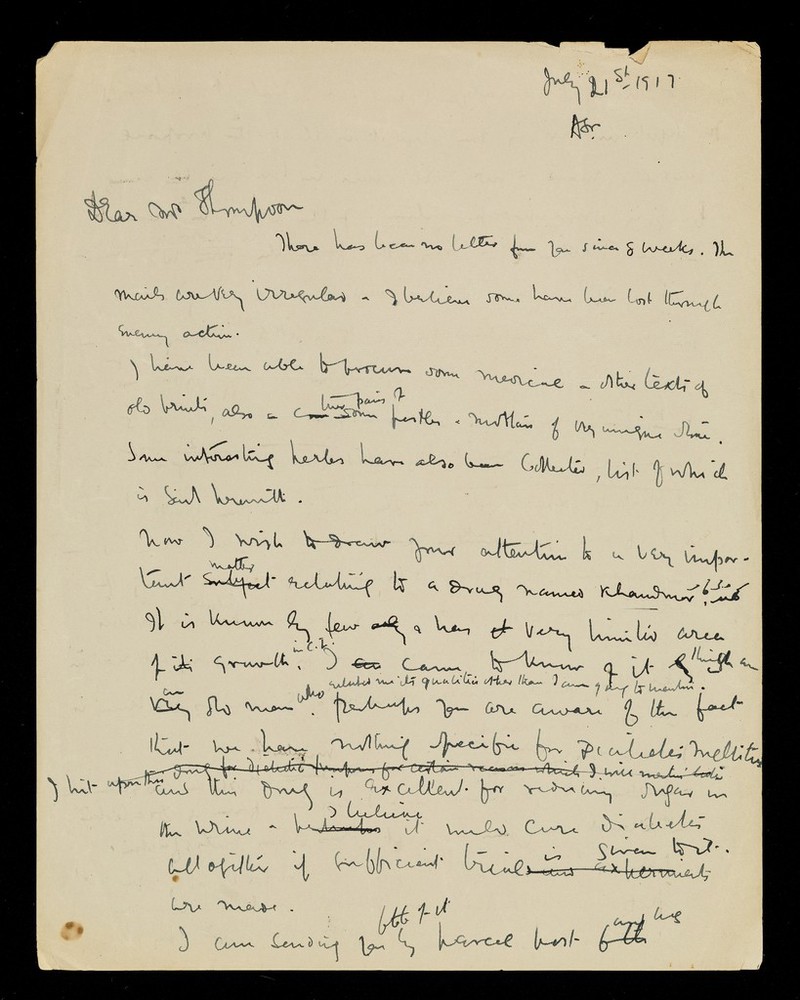 July 21st 1917
Dear Mr Thompson
There has been no letter from you since 8 weeks. The
mails are very irregular & I believe some have been lost through
enemy action.
I have been able to procure some medical & other texts of
old prints, also a some two pairs of pestles & mortars of very unique
Some interesting herbs have also been collected, list of which
is sent herewith.
Now I wish to draw your attention to a very impor-
matter
tant subject relating to a drug named Khandmor
It is known by few only & has it very limited area
of its growth, I came to know of it through an
who me its qualities other than I am going to mention.
very old man. Perhaps you are aware of the fact
that we have nothing specific for Diabetes Mellitus
I hit upon this drug for diabetic for certain reasons which I will mention
and this drug is excellent for reducing sugar in
I believe
the urine & perhaps it will cure diabetes
is given to it.
altogether if sufficient trials and experiments
are made.
of it
I am sending you by parcel post